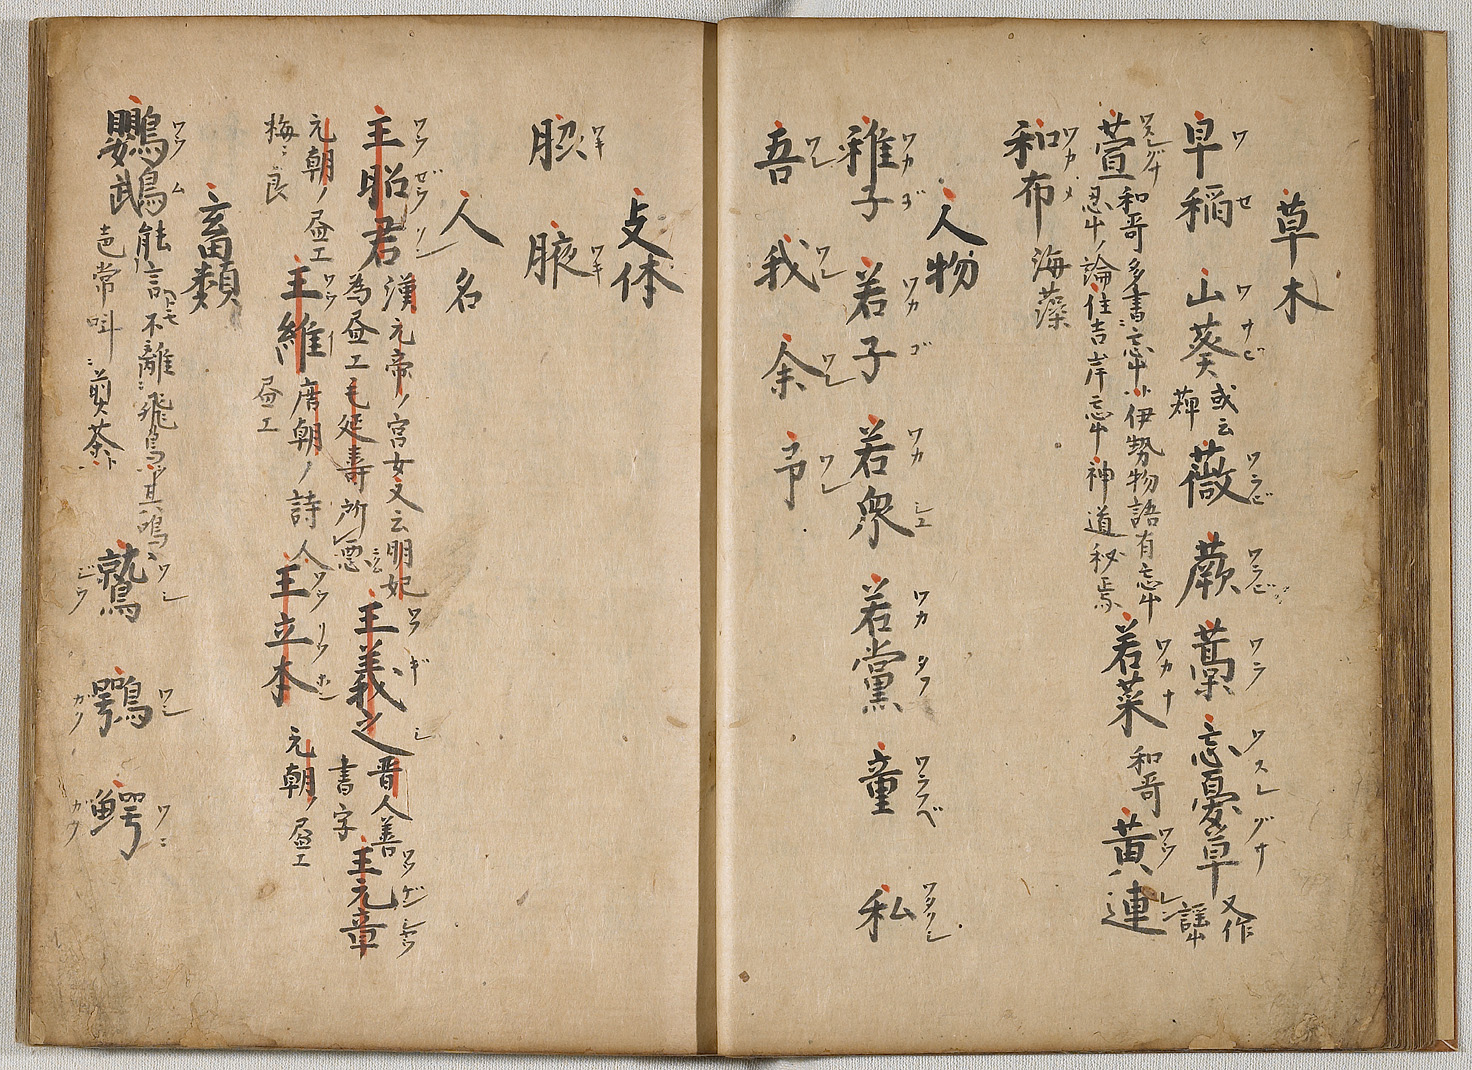 草木
早稲 ワセ 山葵 ワサビ 或云 薇 ワラビ 蕨 ワラビ 藁 ワラ 忘憂草 ワスレグサ 又作
萱 ワスレグサ 和哥多書忘艸 伊勢物語有忘艸
忍艸ノ論住吉岸忘艸神道秘 若菜 ワカナ 和哥 黄連 ワウレン
和布 ワカメ 海藻
人物
稚子 ワカゴ 若子 ワカゴ 若衆 ワカシユ 若黨 ワカタウ 童 ワラワベ 私 ワタクシ
吾 ワレ 我 ワレ 余 ワレ 予 ワレ
支体
脇 ワキ 腋 ワキ
人名
王昭君 ワウゼウクン 漢元帝ノ宮女又云明妃
為畫工毛延壽所悪 王義之 ワウギシ 晋人善
書字 王元章 ワウゲンシヤウ
元朝ノ畫工
梅
王維 ワウイ 唐朝ノ詩人
畫工
王立本 ワウリツホン 元朝ノ畫工
畜類
鸚鵡 ワウム 能言 不離飛鳥 其鳴
色常叫 煎茶 鷲 ワシ ジウ 鶚 ワシ ガク 鰐 ワニ ガク